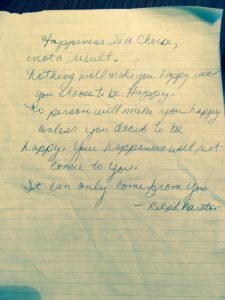 Happiness is a Choice,
not a result.
Nothing will make you happy until
you choose to be Happy.
No person will make you happy
unless you decide to be
happy. Your happiness will not
come to You.
It can only come from You
- Ralph Marston